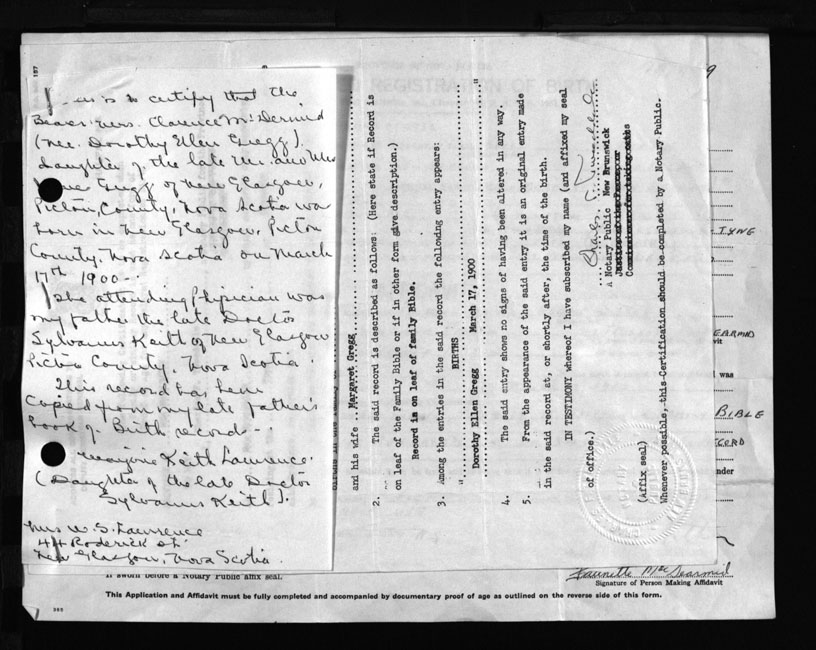 is to certify that the
Bearer Mrs. Clarence McDermid
(nee. Dorothy Ellen Gregg).
daughter of the late Mr. and Mrs
Gregg of New Glasgow,
Pictou, County, Nova Scotia was
born in New Glasgow, Pictou
County, Nova Scotia on March
17th 1900--
The attending Physician was
my father the late Doctor
Sylvanus Keith of New Glasgow
Pictou County, Nova Scotia.
This record has been
copied from my late father's
book of Birth records.
Marjorie Keith Lawrence.
(Daughter of the late Doctor
Sylvanus Keith).
Mrs W. S. Lawrence
44 Roderick St.
New Glasgow, Nova Scotia.
and his wife .. Margaret Gregg
2. The said record is described as follows: (Here state if Record is
on leaf of the Family Bible or if in other form give description.)
Record is on leaf of family Bible.
3. Among the entries in the said record the following entry appears:
BIRTHS
Dorothy Ellen Gregg March 17, 1900
4. The said entry shows no signs of having been altered in any way.
5. From the appearance of the said entry it is an original entry made
in the said record at, or shortly after, the time of the birth.
IN TESTIMONY whereof I have subscribed my name (and affixed my seal
of office.)
A Notary Public New Brunswick
(Affix seal)
Whenever possible, this Certification should be completed by a Notary Public.
REGISTRATION OF BIRTH
was
BIBLE
under
If sworn before a Notary Public affix seal.
Signature of Person Making Affidavit
This Application and Affidavit must be fully completed and accompanied by documentary proof of age as outlined on the reverse side of this form.